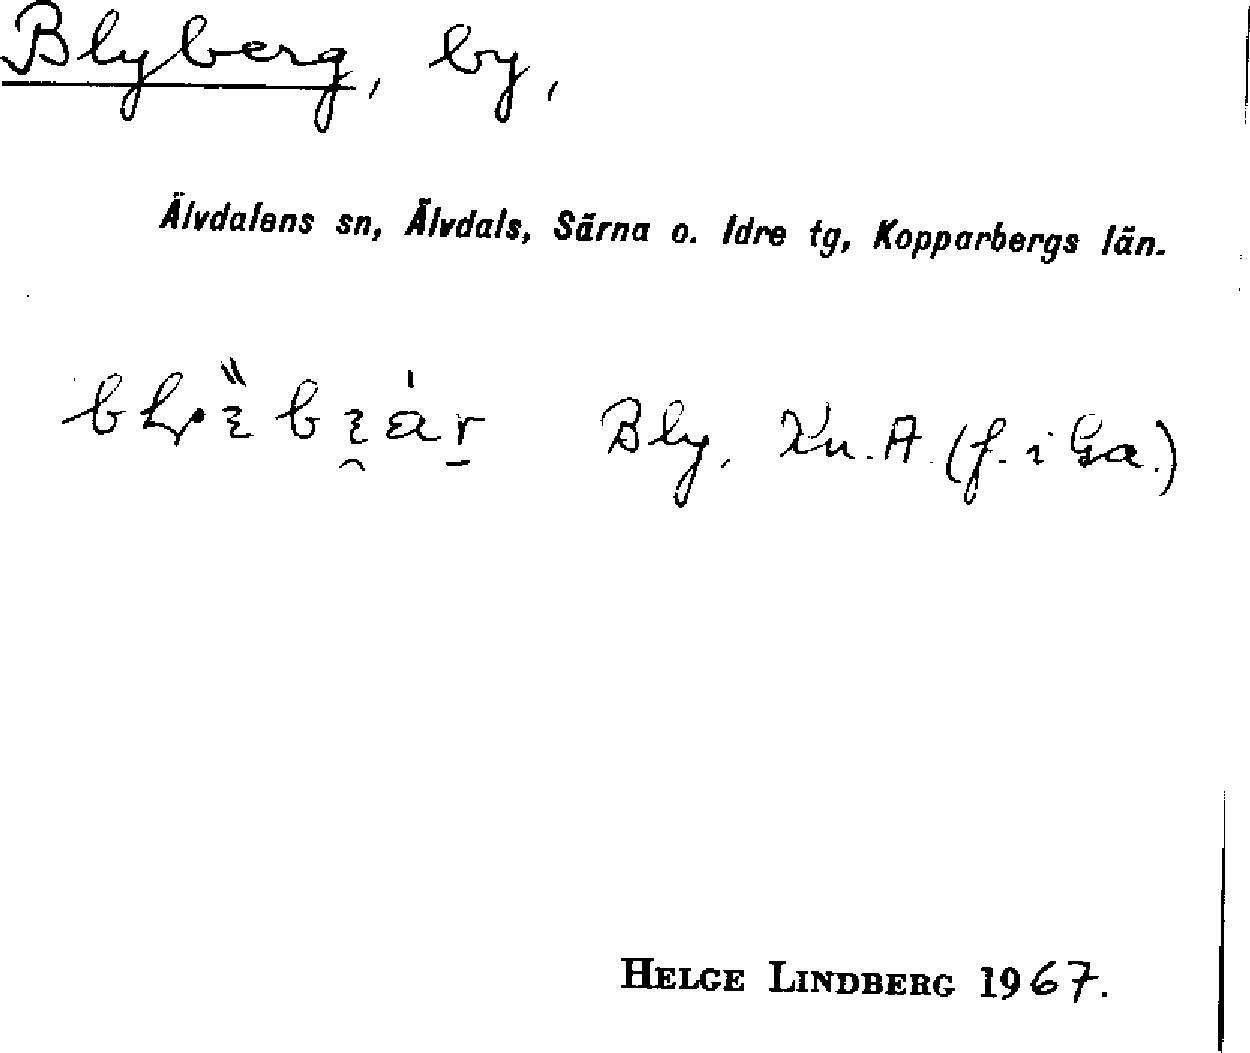 Blyberg, by,
Älvdalens sn, Älvdals, Särna o. Idre tg, Kopparbergs län.
Bly, Kn. A. (f. i Ga.)
HELGE LINDBERG 1967.